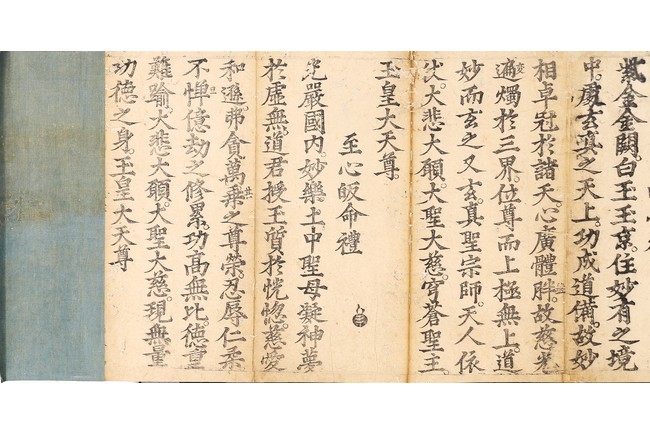 紫金金闕。白玉玉京。住妙有之境
中。處玄真之天上。功成道備。故妙
相卓冠於諸天。心廣體胖。故慈光
遍燭於三界。位尊而上極無上。道
妙而玄之又玄。真聖宗師。天人依
仗。大悲大願。大聖大慈。穹蒼聖主。
玉皇大天尊
至心皈命禮
光嚴國内。妙樂土中聖母凝神夢
於虛無。道君授玉質於恍惚。慈愛
和遜。弗貪萬乘之尊榮。忍辱仁柔
不憚億劫之修累。功高無比。德重
難踰。大悲大願。大聖大慈。現無量
功德之身。玉皇大天尊